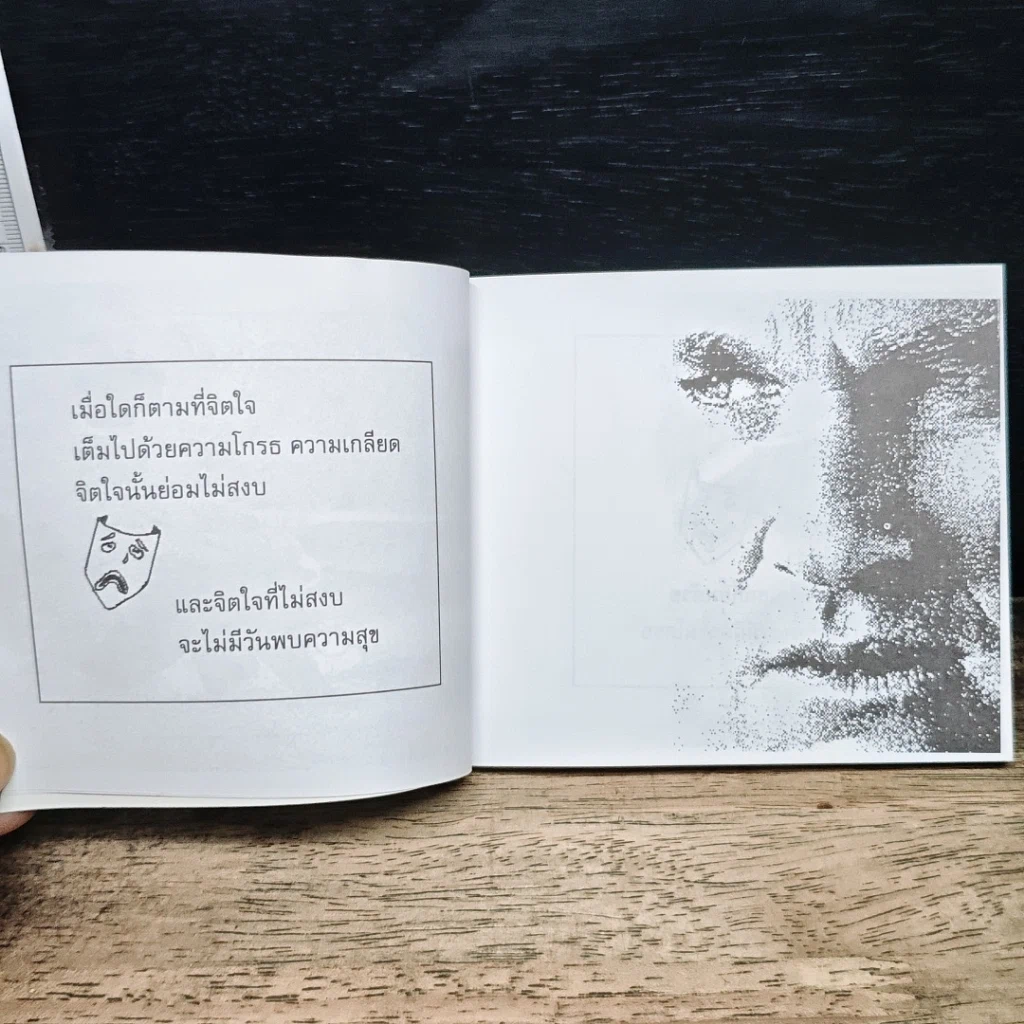 เมื่อใดก็ตามที่จิตใจ
เต็มไปด้วยความโกรธ ความเกลียด
จิตใจนั้นย่อมไม่สงบ
และจิตใจที่ไม่สงบ
จะไม่มีวันพบความสุข